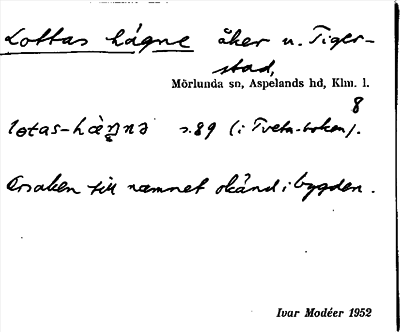 Lottas hägne åker u. Tiger-
stad,
Mörlunda sn, Aspelands hd, Klm. l.
8
s.89 (i Tveta-boken).
Orsaken till namnet okänd i bygden.
Ivar Modéer 1952